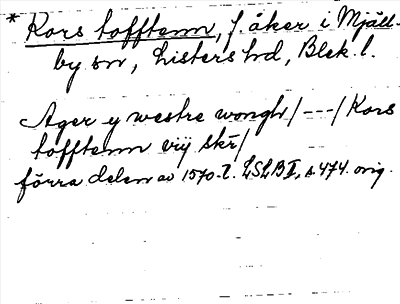 * Kors tofftenn, f. åker i Mjäll-
by sn, Listers hd, Blek. l.
Ager y westre wongh/---/Kors
tofftenn vij skr/
förra delen av 1570-t. LSLB II, s 474. orig.